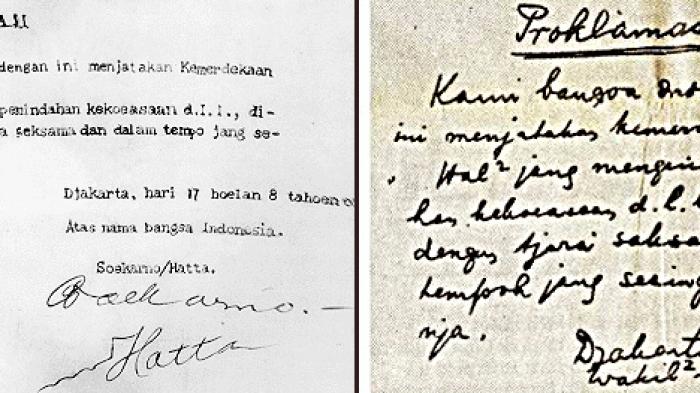 dengan ini menjatakan Kemerdekaan
penindahan kekoeasaan d.l.l., di-
a seksama dan dalam tempo jang se-
Djakarta, hari 17 boelan 8 tahoen 05
Atas nama bangsa Indonesia.
Soekarno/Hatta.
Soekarno.—
Hatta
Proklamas
Kami bangsa Indo
ini menjatakan kemer
Hal² jang mengen
han kekoeasaan d.l.l
dengan tjara saksa
tempoh jang sesing
nja.
Djakart
Wakil²